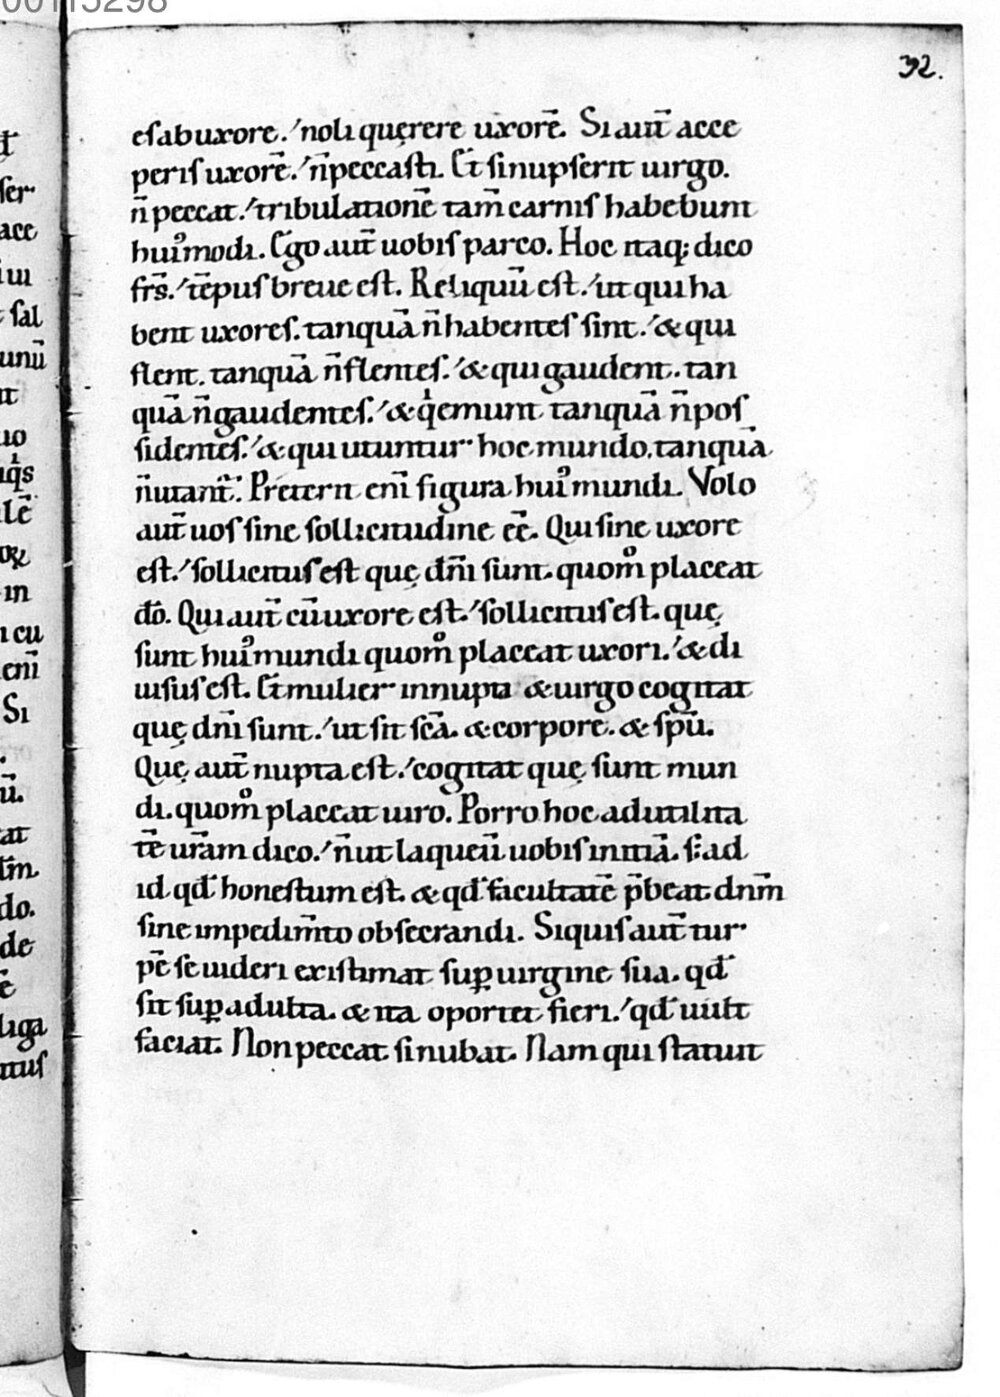 00115298
32.
eſ ab uxore. noli quęrere uxorē. Si aut̄ acce
periſ uxorē. n̄ peccaſti. Et ſi nupſerit uirgo.
n̄ peccat. tribulationē tam̄ carniſ habebunt
hui᾽modi. Ego aut̄ uobiſ parco. Hoc itaq; dico
fr̄s. tēpuſ breue eſt. Reliquū eſt. ut qui ha
bent uxoreſ. tanquā n̄ habenteſ ſint. & qui
flent. tanquā n̄ flenteſ. & qui gaudent. tan
quā n̄ gaudenteſ. & qͥ emunt tanquā n̄ poſ
ſidenteſ. & qui utuntur hoc mundo. tanquā
n̄ utant᷑. Preterit eni̅ figura hui᾽ mundi. Volo
aut̄ uoſ ſine ſollicitudine ee̅. Qui ſine uxore
eſt. ſollicituſ eſt quę dn̄i ſunt. quom̊ placeat
do̅. Qui aut̄ cū uxore eſt. ſollicituſ eſt. quę
ſunt hui᾽ mundi quom̊ placeat uxori. & di
uiſuſ eſt. Et mulier innupta & uirgo cogitat
quę dn̄i ſunt. ut ſit ſc̄a. & corpore. & ſpū.
Quę aut̄ nupta eſt. cogitat quę ſunt mun
di. quom̊ placeat uiro. Porro hoc ad utilita
tē ur̄am dico. n̄ ut laqueū uobiſ initiā. ſ; ad
id qd̄ honeſtum eſt. & qd̄ facultatē p̄beat dn̄m
ſine impedim̄to obſecrandi. Siquiſ aut̄ tur
pē ſe uideri exiſtimat ſuꝑ uirgine ſua. qd̄
ſit ſuꝑ adulta. & ita oportet fieri. qd̄ uult
faciat. Non peccat ſi nubat. Nam qui ſtatuit